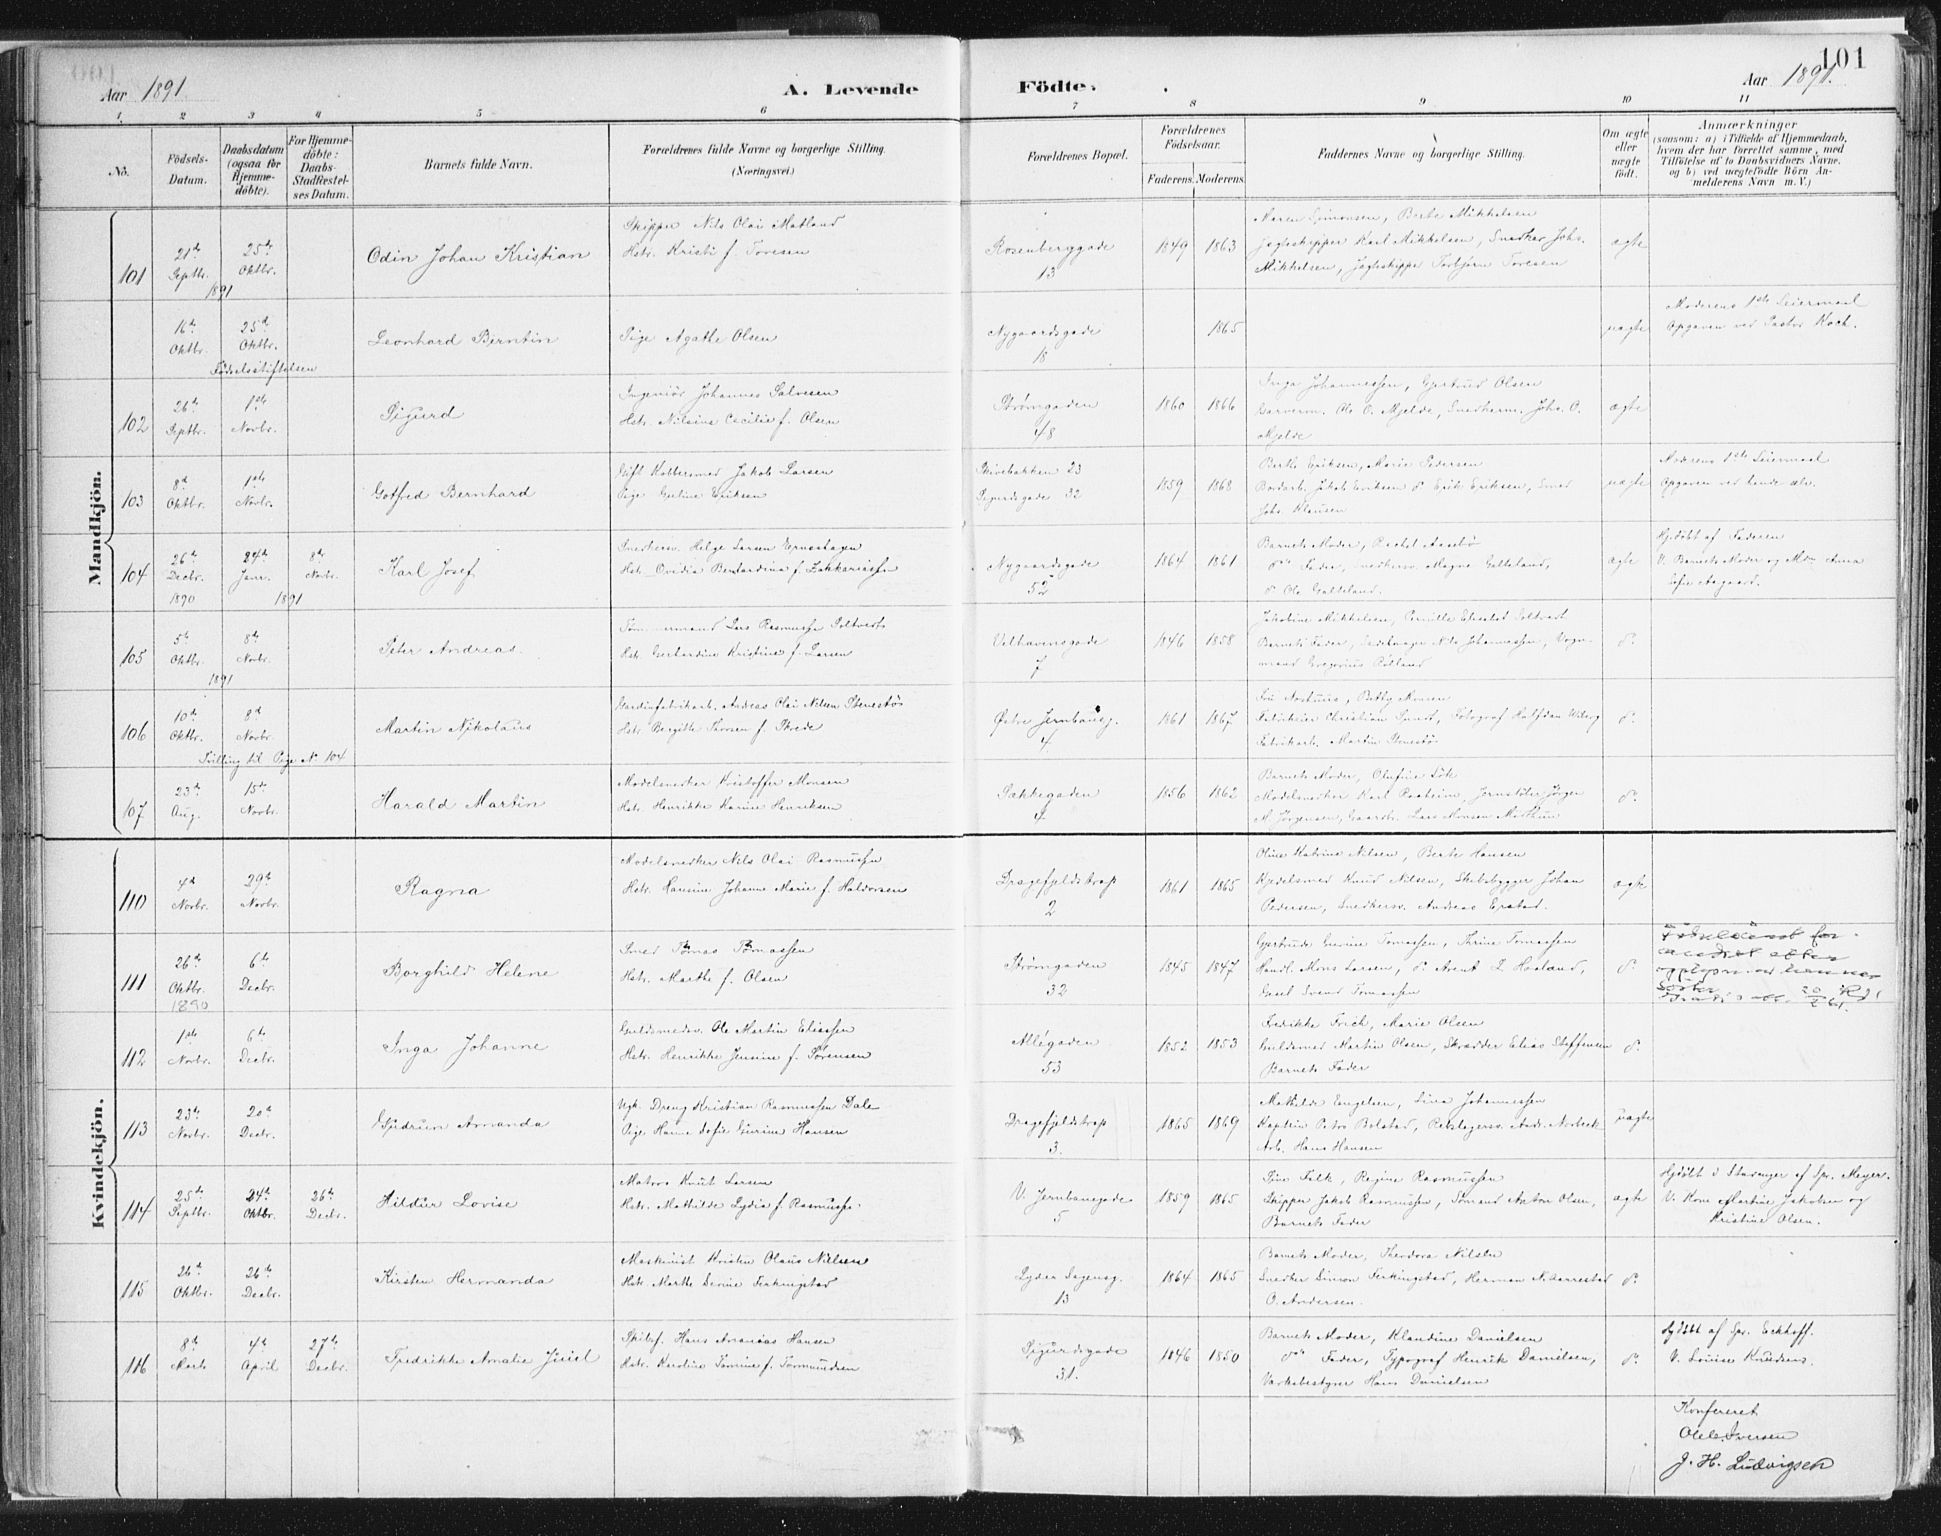 101
Aar 1891.
A. Levende Födte.
Aar 1891.
1. 2 3 4 5 6 7 8 9 10 11
No.
Födsels-Datum.
Daabsdatum (ogsaa for Hjemmedöbte).
For Hjemmedöbte: Daabs-Stadfæstelses Datum.
Barnets fulde Navn.
Forældrenes fulde Navne og borgerlige Stilling. (Næringsvei.)
Forældrenes Bopæl.
Forældrenes Födselsaar.
Faderens. Moderens.
Faddernes Navne og borgerlige Stilling.
Om ægte eller uægte födt.
Anmærkninger
(saasom: a) i Tilfælde af Hjemmedaab, hvem der har forrettet samme, med Tilföielse af to Daabsvidners Navne. og b) ved uægtefödte Börn Anmelderens Navn m. V.)
Mandkjön.
101 21de Septbr. 25de Oktbr. Odin Johan Kristian
Skipper Nils Olai Matland
Hstr. Kristi f. Toresen
Rosenberggade 13 1849 1863
Maren Simonsen, Berte Mikkelsen
Jagteskipper Karl Mikkelsen, Snedker Johs.
Mikkelsen, Jagteskipper Torbjørn Toresen
ægte
1891
16de Oktbr. 25de Oktbr. Leonhard Berntin
Pige Agathe Olsen
Nygaardsgade 18 1865
uægte
Moderens 1ste Leiermaal
Opgaven ved Pastor Koch.
Fødselsstiftelsen
102 26de Septbr. 1ste Novbr. Sigurd
Ingeniör Johannes Salvesen
Hstr. Nilsine Cecilie f. Olsen
Strømgaden 48 1860 1866
Inga Johannessen, Gjertrud Olsen
Garverm. Ole O. Mjelde, Snedkerm. Johs. O.
Mjelde
ægte
103 8de Oktbr. 1ste Novbr. Gotfred Bernhard
Gift Kobbersmed Jakob Larsen
Pige Gurline Eriksen
Skivebakken 23
Sigurdsgade 32 1859 1868
Berthe Eriksen, Marie Pedersen
Bordarb. Jakob Eriksen do Erik Eriksen, Smed
Johs. Klausen
uægte
Moderens 1ste Leiermaal
Opgaven ved hende selv.
104 26de Decbr. 1890 24de Janr. 1891 8de Novbr. Karl Josef
Snedkersv. Helge Larsen
Hstr. Ovidia Berhardina f. Zakkariassen
Nygaardsgade 52 1864 1861
Barnets Moder, Rachel Aasebö
do Fader, Snedkersv. Magne Galteland,
do Ole Galteland.
ægte
Hj.döbt af Faderen
V. Barnets Moder og Mdm Anna
Sofie Aagaard.
105 5te Oktbr. 8de Novbr. 1891 Peter Andreas.
Tömmermand Lars Rasmussen Soltvedt
Hstr. Gerhardine Kristine f. Larsen
Velhavensgade 7 1846 1858
Jakobine Mikkelsen, Pernille Elisabet Soltvedt
Barnets Fader, Nils Johannessen, Vogn-
mand Gregorius Rölland
do
106 10de Oktbr. 8de Novbr. Martin Nikolaus
Sardinfabrikarb. Andreas Olai Nilsen Stenestös
Hstr. Bergitte Thorsen f. Brede
Østre Jernbaneg. 4 1861 1867
Betty Monsen
Fabrikeier Christian Sundt, Fotograf Halfdan Wiberg
Fabrikarb. Martin Stenestö.
do
Tvilling til Pige No 104
107 23de Aug. 15de Novbr. Harald Martin
Modelsnedker Kristoffer Monsen
Hstr. Henrikke Karine Henriksen
Sakkegaden 4 1856 1862
Barnets Moder, Olufine Lök
Modelsnedker Karl Raaheim, Jernstöber Jörgen
M. Jörgensen, Gaardb. Lars Monsen
do
Kvindekjön.
110 4de Novbr. 29de Novbr. Ragna
Modelsnedker Nils Olai Rasmussen
Hstr. Hansine Johanne Marie f. Haldorsen
Dragefjeldstrap 2 1861 1865
Oline Katrine Nilsen, Berte Hansen
Kjedelsmed Knud Nilsen, Skibsbygger Johan
Pedersen, Snedkersv. Andreas Erstad.
ægte
111 26de Oktbr. 1890 6te Decbr. Borghild Helene
Smed Tomas Tomassen
Hstr. Marthe f. Olsen
Strømgaden 32 1845 1847
Gjertrude Gurine Tomassen, Thrine Tomassen
Handl. Mons Larsen, do Arent L Haaland,
Gesel Svend Tomassen
do
112 1ste Novbr. 6te Decbr. Inga Johanne
Guldsmedsv. Ole Martin Eliassen
Hstr. Henrikke Jensine f. Sörensen
Allégaden 53 1852 1853
Fredrikke Frich, Marie Olsen
Guldsmed Martin Olsen, Skrædder Elias Steffensen
Barnets Fader
do
113 23de Novbr. 20de Decbr. Gudrun Amanda
Ugk. Dreng Kristian Rasmussen Dale
Pige Hanne Sofie Gurine Hansen
Dragefjeldstrap 3. 1865 1869
Mathilde Engelsen, Lina Johannessen
Kaptein Petro Bolstad, Rebslagersv. Andr. Norbeck
Arb. Hans Hansen
uægte
114 25de Septbr. 24de Oktbr. 26de Decbr. Hildur Lovise
Matros Knut Larsen
Hstr. Mathilde Lydia f. Rasmussen
V. Jernbanegade 5 1859 1865
Sine Falk, Regine Rasmussen
Skipper Jakob Rasmussen, Sömand Anton Olsen,
Barnets Fader
ægte
Hjdöbt i Stavanger af Spr. Meyer.
V. Kone Martine Jakobsen og
Kristine Olsen.
115 26de Oktbr. 26de Decbr. Kirsten Hermanda
Maskinist Kristen Olaus Nilsen
Hstr. Marthe Serine Ferkingstad
Lyder Sagensg. 13 1864 1865
Barnets Moder, Theodora Nilsen
Snedker Simon Ferkingstad, Herman N. Aarrestad
O. Andersen.
do
116 8de Marts 4de April 27de Decbr. Fredrikke Amalie Juul
Skibsf. Hans Ananias Hansen
Hstr. Karoline Tomine f. Tormundsen
Sigurdsgade 31. 1846 1850
Barnets Moder, Klaudine Danielsen
do Fader, Typograf Henrik Danielsen,
Værksbestyrer Hans Danielsen
do
Hjdöbt af Spr. Eckhoff.
V. Louise Knudsens.
Konfereret
Ole C. Iversen
J. H. Ludvigsen